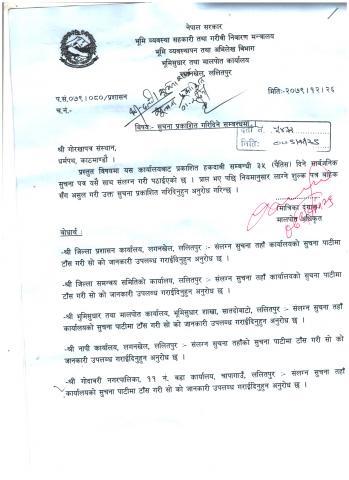 नेपाल सरकार
भूमि व्यवस्था सहकारी तथा गरीबी निवारण मन्त्रालय
भूमि व्यवस्थापन तथा अभिलेख विभाग
भूमिसुधार तथा मालपोत कार्यालय
लगनखेल, ललितपुर
प.सं.०७९।०८०/प्रशासन
मिति:-२०७९।१२।२६
च.नं.-
विषय:- सुचना प्रकाशित गरिदिने सम्बन्धमा।
दर्ता नं.
मिति:
श्री गोरखापत्र संस्थान,
धर्मपथ, काठमाण्डौ ।
प्रस्तुत विषयमा यस कार्यालयबाट प्रकाशित हकदाबी सम्बन्धी ३५ (पैतिस) दिने सार्बजनिक
सुचना पत्र यसै साथ संलग्न गरी पठाईएको छ । प्राप्त भए पछि नियमानुसार लाग्ने शुल्क पत्र बाहक
सँग असुल गरी उक्त सुचना प्रकाशित गरिदिनुहुन अनुरोध गरिन्छ ।
मालपोत अधिकृत
बोधार्थ :
-श्री जिल्ला प्रशासन कार्यालय, लगनखेल, ललितपुर :- संलग्न सुचना तहाँ कार्यालयको सुचना पाटीमा
टाँस गरी सो को जानकारी उपलब्ध गराईदिनुहुन अनुरोध छ ।
-श्री जिल्ला समन्वय समितिको कार्यालय, ललितपुर :- संलग्न सुचना तहाँ कार्यालयको सुचना पाटीमा
टाँस गरी सो को जानकारी उपलब्ध गराईदिनुहुन अनुरोध छ ।
-श्री भूमिसुधार तथा मालपोत कार्यालय, भूमिसुधार शाखा, सातदोबाटो, ललितपुर :- संलग्न सुचना तहाँ
कार्यालयको सुचना पाटीमा टाँस गरी सो को जानकारी उपलब्ध गराईदिनुहुन अनुरोध छ ।
-श्री नापी कार्यालय, लगनखेल, ललितपुर :- संलग्न सुचना तहाँको सुचना पाटीमा टाँस गरी सो को
जानकारी उपलब्ध गराईदिनुहुन अनुरोध छ ।
-श्री गोदावरी नगरपालिका, ११ नं. वडा कार्यालय, चापागाउँ, ललितपुर :- संलग्न सुचना तहाँ
कार्यालयको सुचना पाटीमा टाँस गरी सो को जानकारी उपलब्ध गराईदिनुहुन अनुरोध छ ।